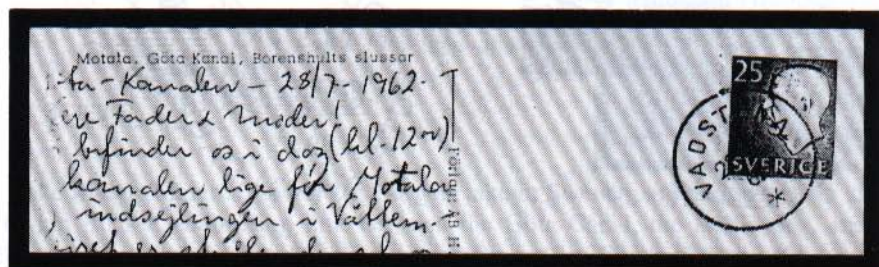 Motala, Göta Kanal, Borenshults slussar
Kanalen - 28/7-1962.
Fader & Moder!
befinder os i dag (kl. 12ºº)
kanalen lige før Motala
indsejlingen i Vättern-
25
VADST
SVERIGE